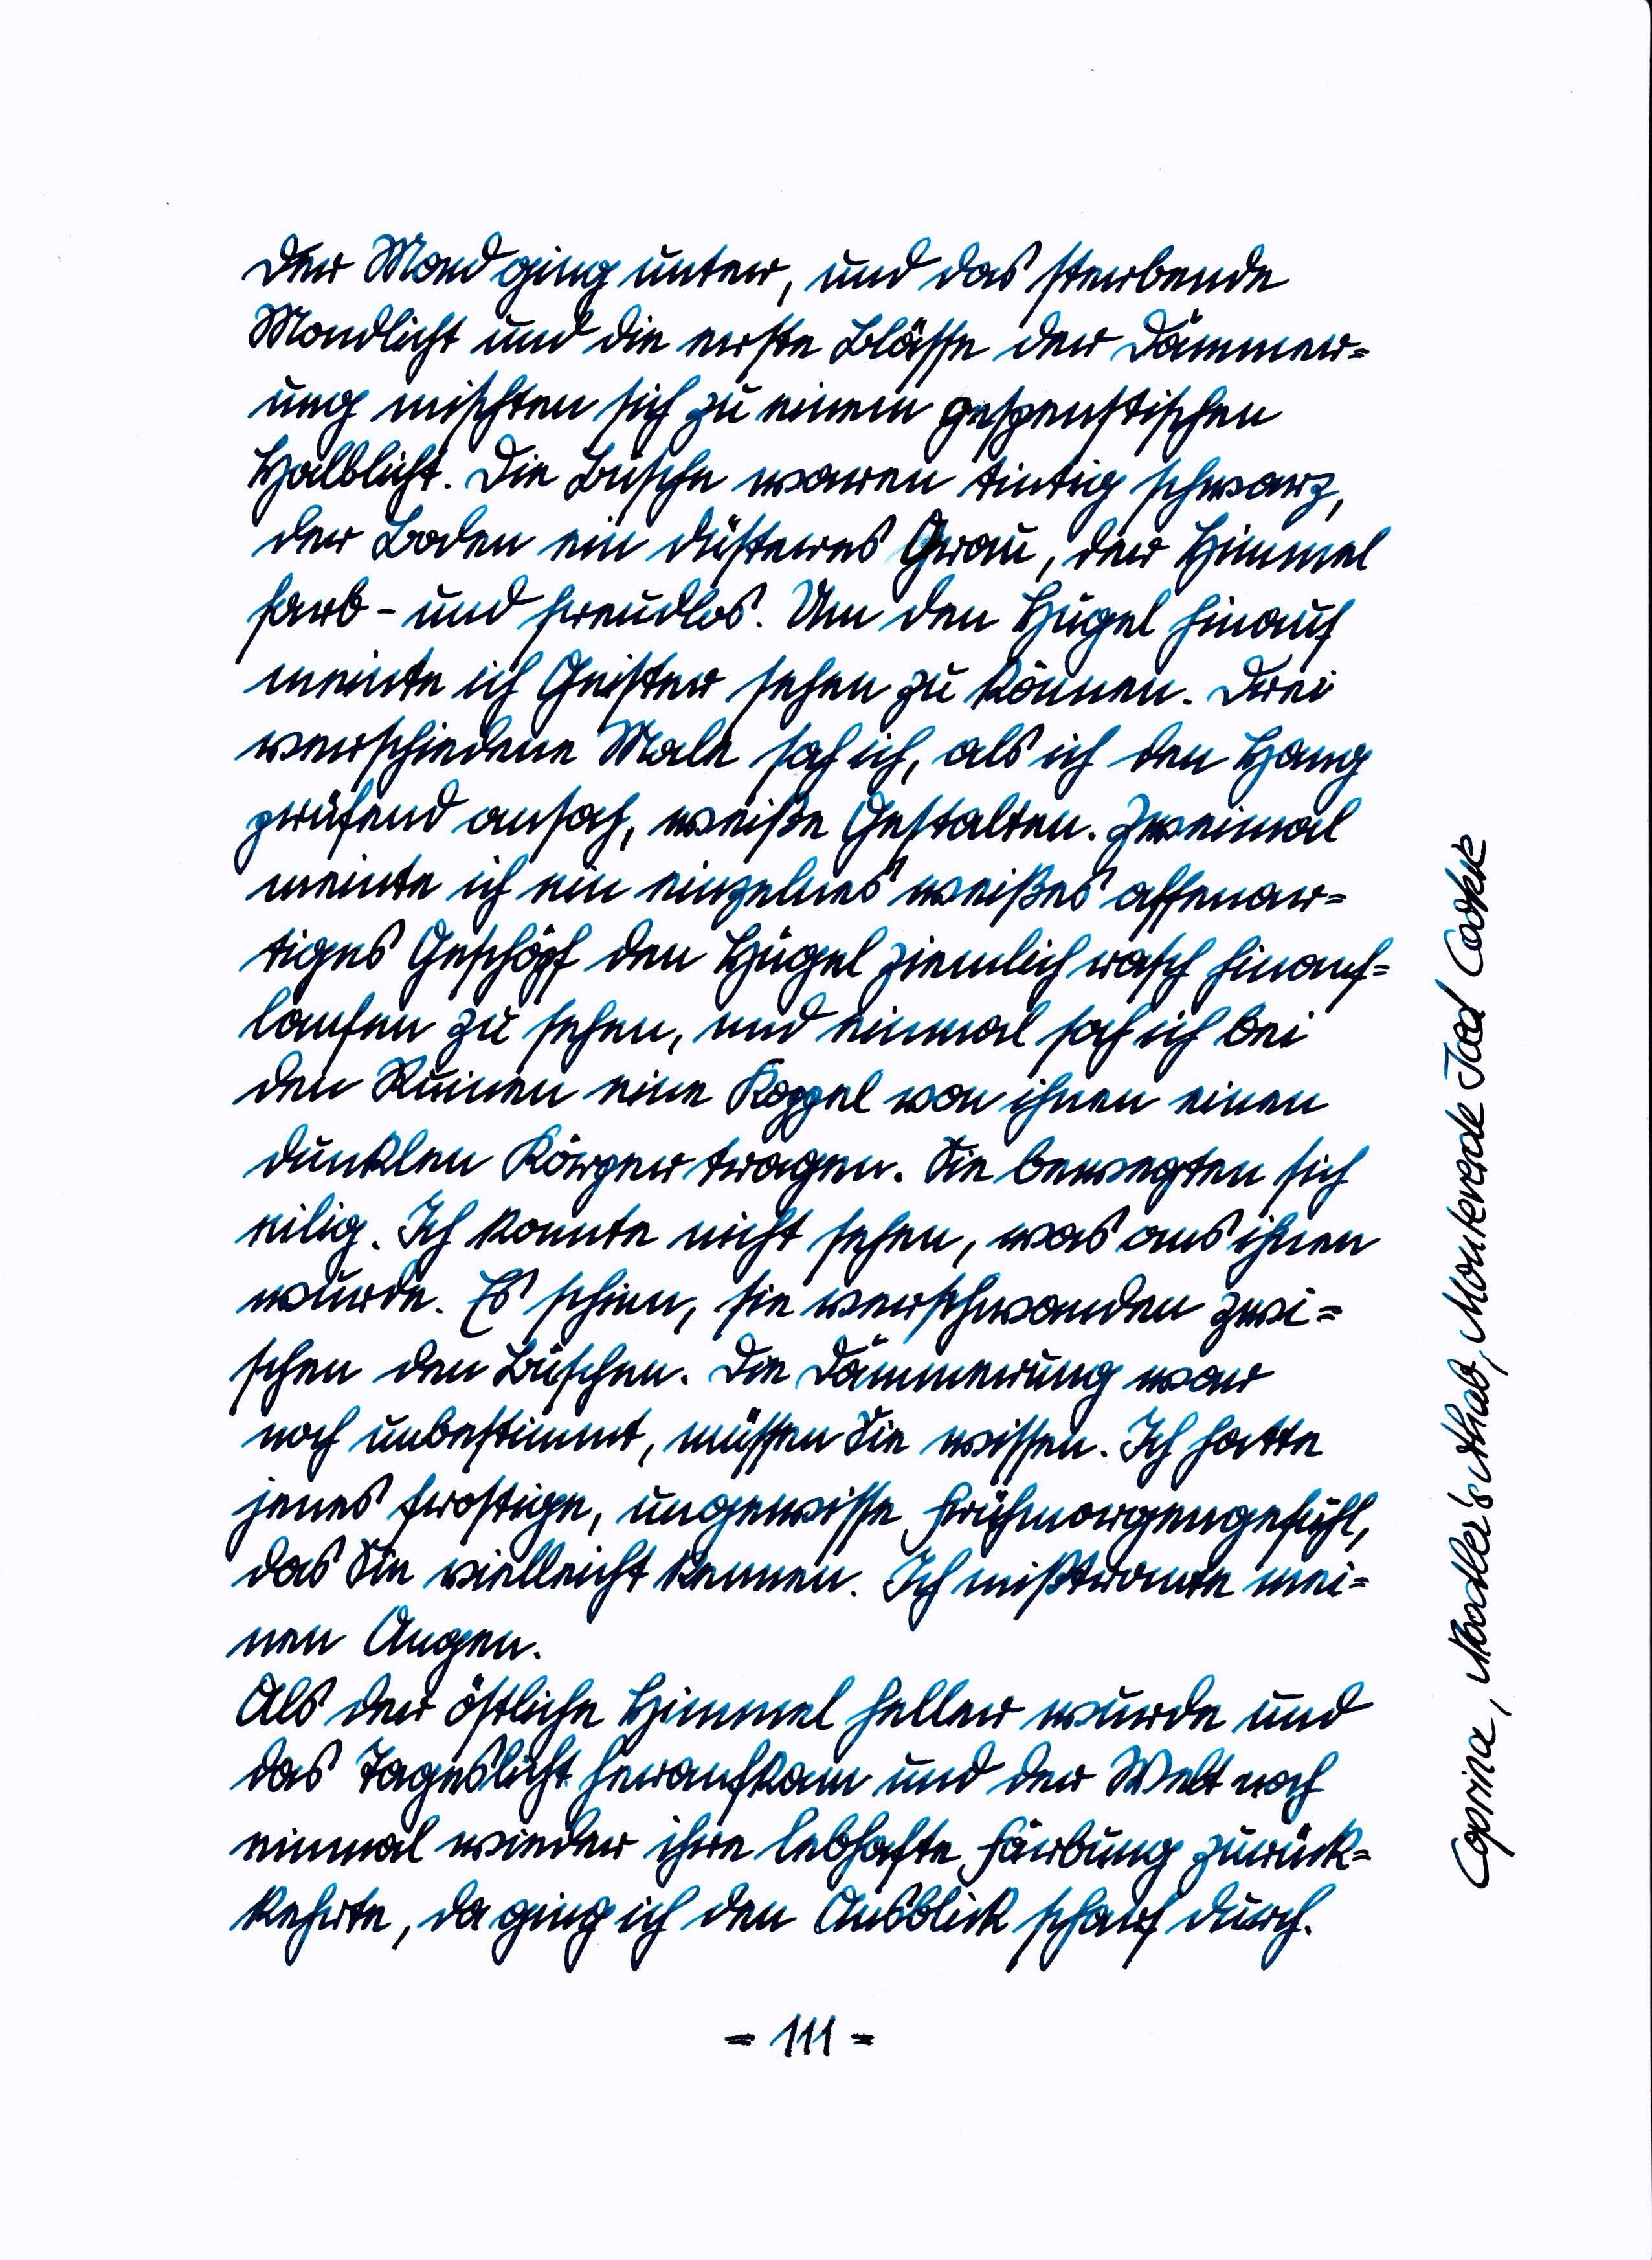 Der Mond ging unter, und das sterbende
Mondlicht und die erste Blässe der Dämmer=
ung mischten sich zu einem gespenstischen
Halblicht. Die Büsche waren tintig schwarz,
der Boden ein düsteres Grau, der Himmel
farb- und freudlos. Um den Hügel hinauf
meinte ich Geister sehen zu können. Drei
verschiedene Male sah ich, als ich den Hang
prüfend ansah, weiße Gestalten. Zweimal
meinte ich ein einzelnes weißes affenar=
tiges Geschöpf den Hügel ziemlich rasch hinauf=
laufen zu sehen, und einmal sah ich bei
den Ruinen eine Koppel von ihnen einen
dunklen Körper tragen. Sie bewegten sich
eilig. Ich konnte nicht sehen, was aus ihnen
wurde. Es schien, sie verschwanden zwi=
schen den Büschen. Die Dämmerung war
noch unbestimmt, müssen Sie wissen. Ich hatte
jenes frostige, ungewisse Frühmorgengefühl,
das Sie vielleicht kennen. Ich mißtraute mei=
nen Augen.
Als der östliche Himmel heller wurde und
das Tageslicht heraufkam und der Welt noch
einmal wieder ihre lebhafte Färbung zurück=
kehrte, da ging ich den Ausblick scharf durch.
= 111 =
Monteverde Jod